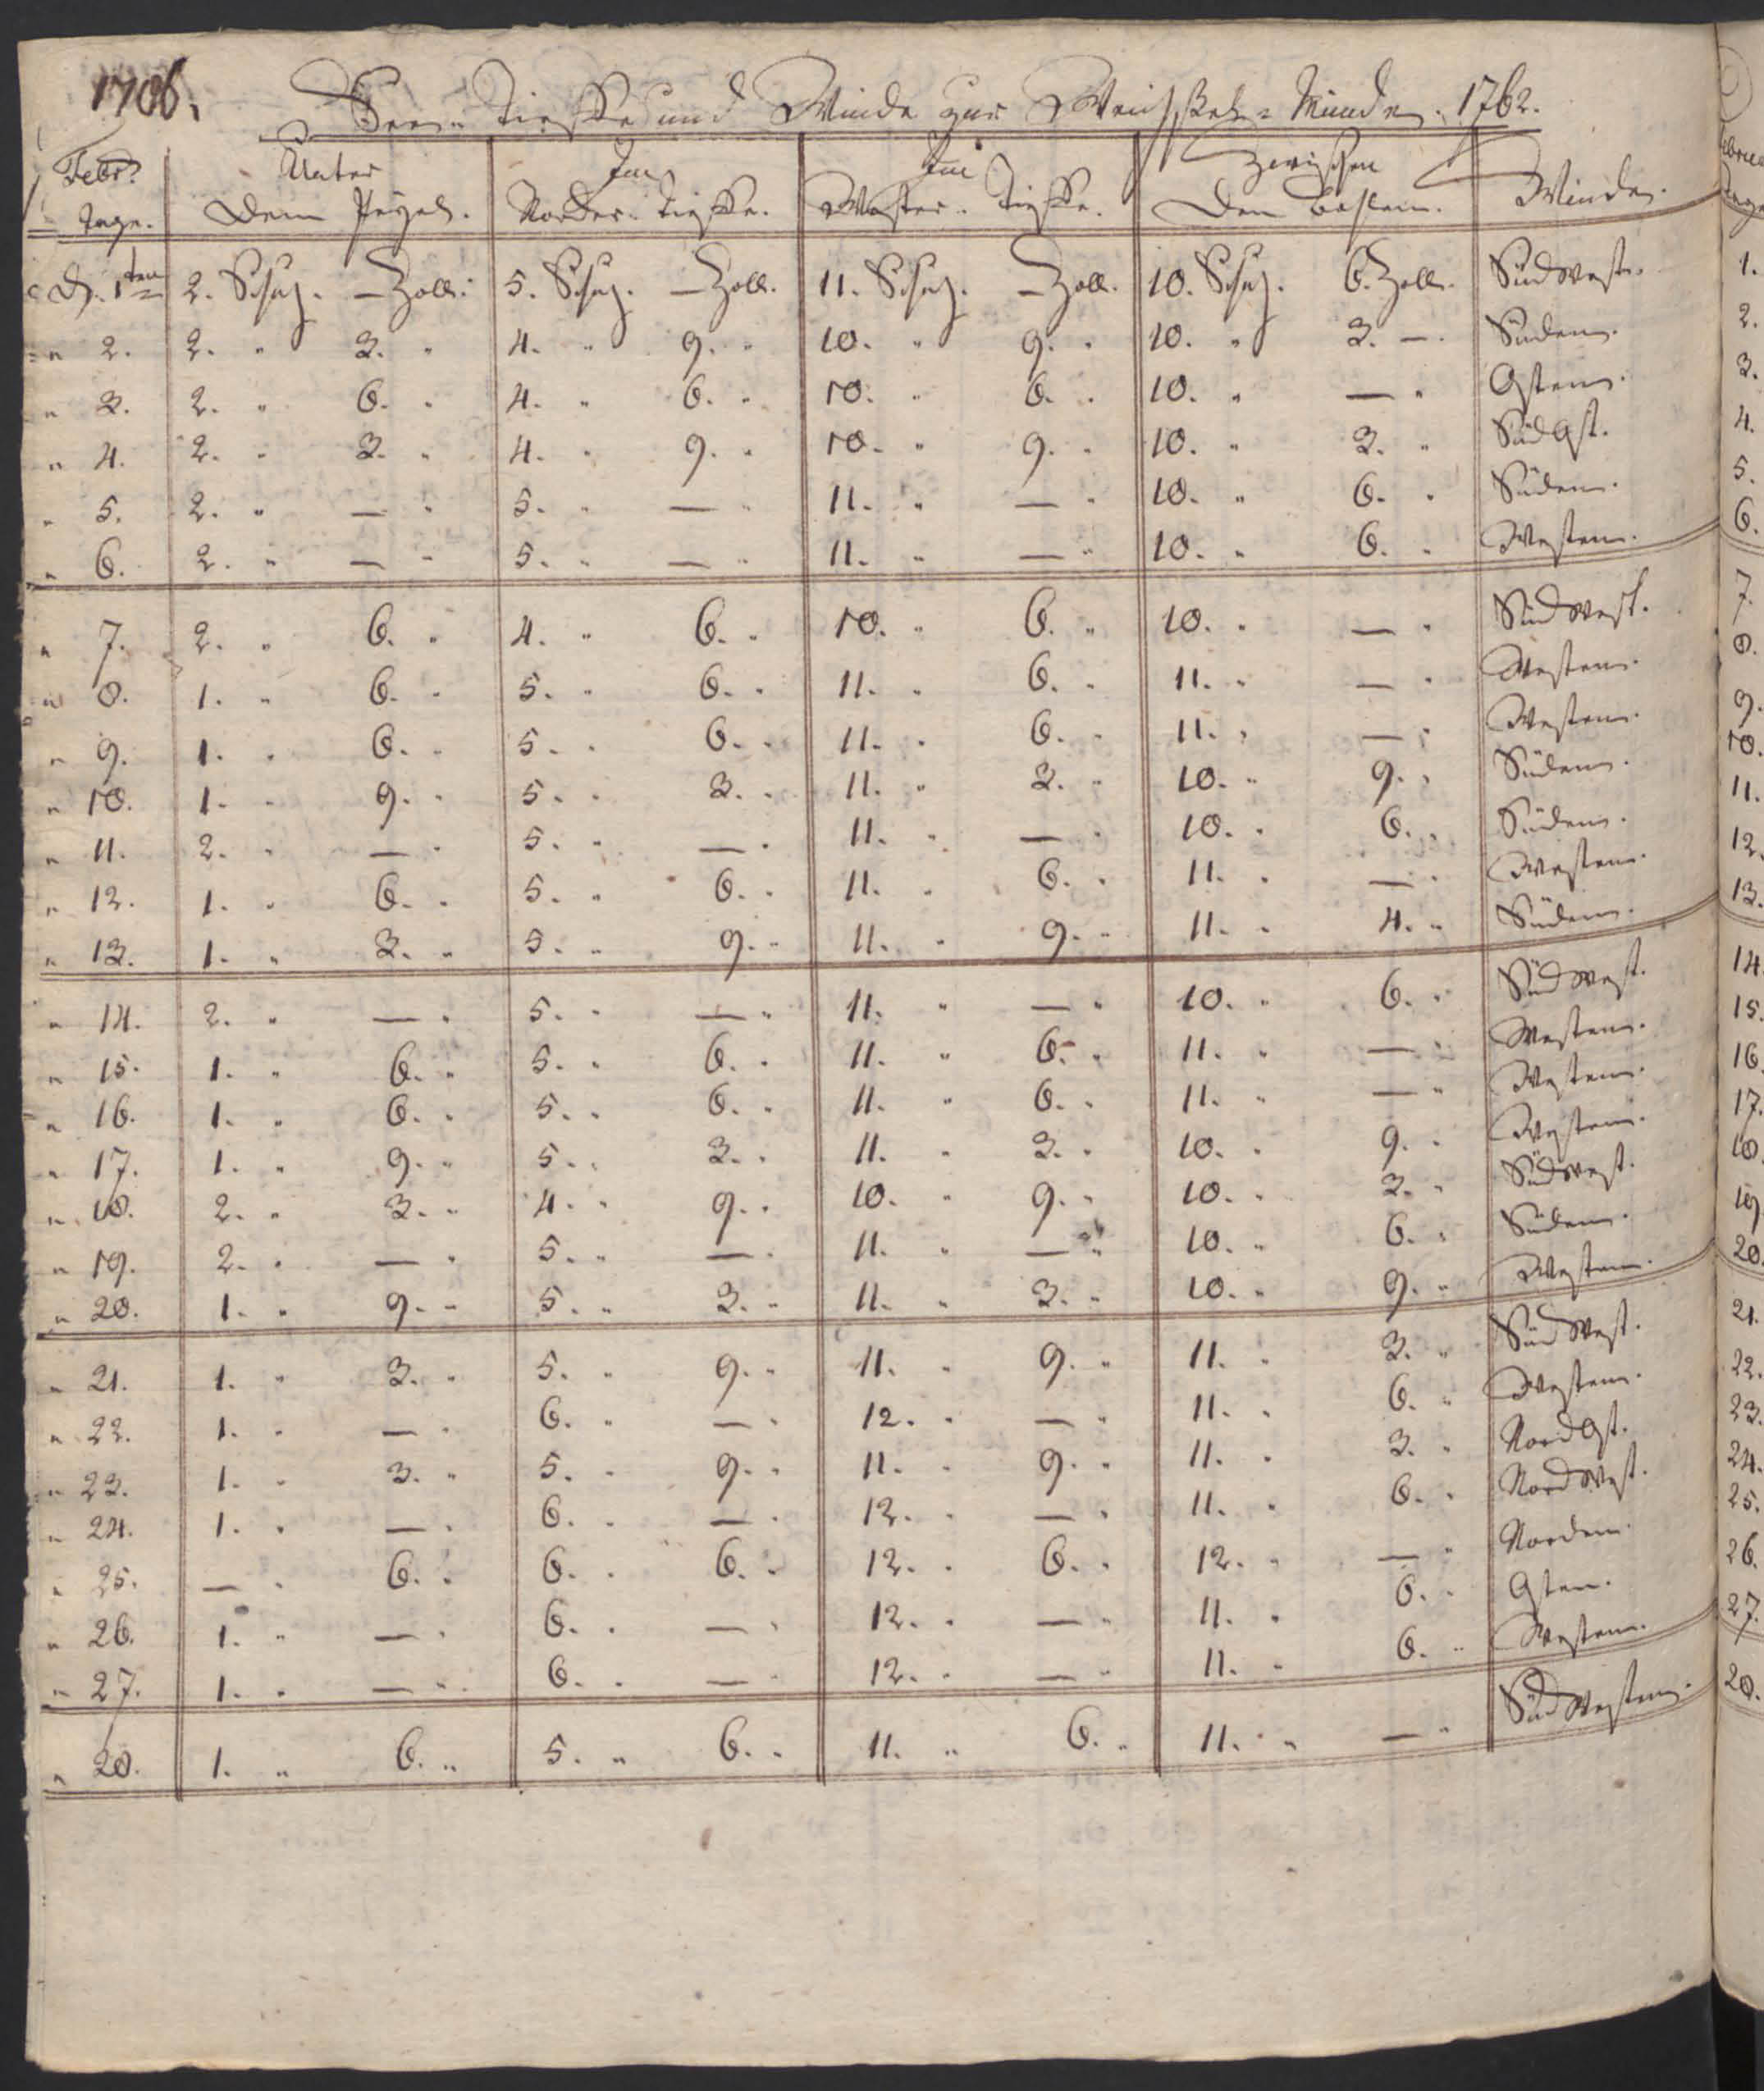 1706.
Seen Tieffe und Winde zur Weichsel-Münde. 1762.
Febr. Unter Im Im Zwischen
Tage. Dem Pegel. Norder-Tieffe. Wester-Tieffe. Den Winden.
D. 1ten 2. Schuh. — Zoll. 5. Schuh. — Zoll. 11. Schuh. — Zoll. 10. Schuh. 6. Zoll. Südwest.
" 2. 2. " 3. " 4. " 9. " 10. " 9. " 10. " 3. — Süden.
" 3. 2. " 6. " 4. " 6. " 10. " 6. " 10. " — " Osten.
" 4. 2. " 3. " 4. " 9. " 10. " 9. " 10. " 3. " Südost.
" 5. 2. " — " 5. " — " 11. " — " 10. " 6. " Süden.
" 6. 2. " — " 5. " — " 11. " — " 10. " 6. " Westen.
" 7. 2. " 6. " 4. " 6. " 10. " 6. " 10. " — " Südwest.
" 8. 1. " 6. " 5. " 6. " 11. " 6. " 11. " — " Westen.
" 9. 1. " 6. " 5. " 6. " 11. " 6. " 11. " — " Westen.
" 10. 1. " 9. " 5. " 3. " 11. " 3. " 10. " 9. " Süden.
" 11. 2. " — " 5. " — " 11. " — " 10. " 6. " Süden.
" 12. 1. " 6. " 5. " 6. " 11. " 6. " 11. " — " Westen.
" 13. 1. " 3. " 5. " 9. " 11. " 9. " 11. " 4. " Süden.
" 14. 2. " — " 5. " — " 11. " — " 10. " 6. " Südwest.
" 15. 1. " 6. " 5. " 6. " 11. " 6. " 11. " — " Westen.
" 16. 1. " 6. " 5. " 6. " 11. " 6. " 11. " — " Westen.
" 17. 1. " 9. " 5. " 3. " 11. " 3. " 10. " 9. " Westen.
" 18. 2. " 3. " 4. " 9. " 10. " 9. " 10. " 3. " Südwest.
" 19. 2. " — " 5. " — " 11. " — " 10. " 6. " Süden.
" 20. 1. " 9. " 5. " 3. " 11. " 3. " 10. " 9. " Westen.
" 21. 1. " 3. " 5. " 9. " 11. " 9. " 11. " 3. " Südwest.
" 22. 1. " — " 6. " — " 12. " — " 11. " 6. " Westen.
" 23. 1. " 3. " 5. " 9. " 11. " 9. " 11. " 3. " Nordost.
" 24. 1. " — " 6. " — " 12. " — " 11. " 6. " Nordwest.
" 25. — " 6. " 6. " 6. " 12. " 6. " 12. " — " Norden.
" 26. 1. " — " 6. " — " 12. " — " 11. " 6. " Osten.
" 27. 1. " — " 6. " — " 12. " — " 11. " 6. " Westen.
" 28. 1. " 6. " 5. " 6. " 11. " 6. " 11. " — " Südwesten.
1.
2.
3.
4.
5.
6.
7.
8.
9.
10.
11.
12.
13.
14.
15.
16.
17.
18.
19.
20.
21.
22.
23.
24.
25.
26.
27.
28.